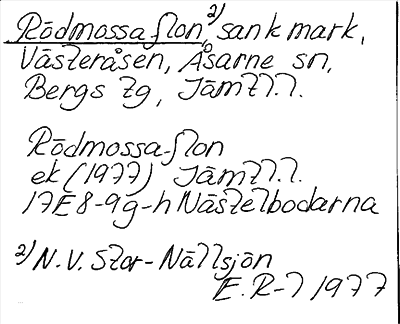 Rödmossaflon, 2) sank mark,
Västeråsen, Åsarne sn,
Bergs tg, Jämtl.l.
Rödmossa-flon
ek (1977) Jämtl.l.
17E8-9g-h Nästelbodarna
2) N.V. Stor-Nällsjön
E.R-l 1977